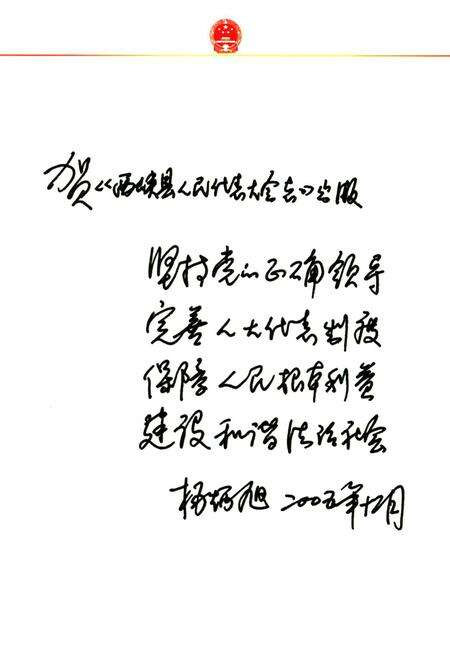 贺《西峡县人民代表大会志》出版
坚持党的正确领导
完善人大代表制度
保障人民根本利益
建设和谐法治社会
杨炳旭 二〇〇五年十二月